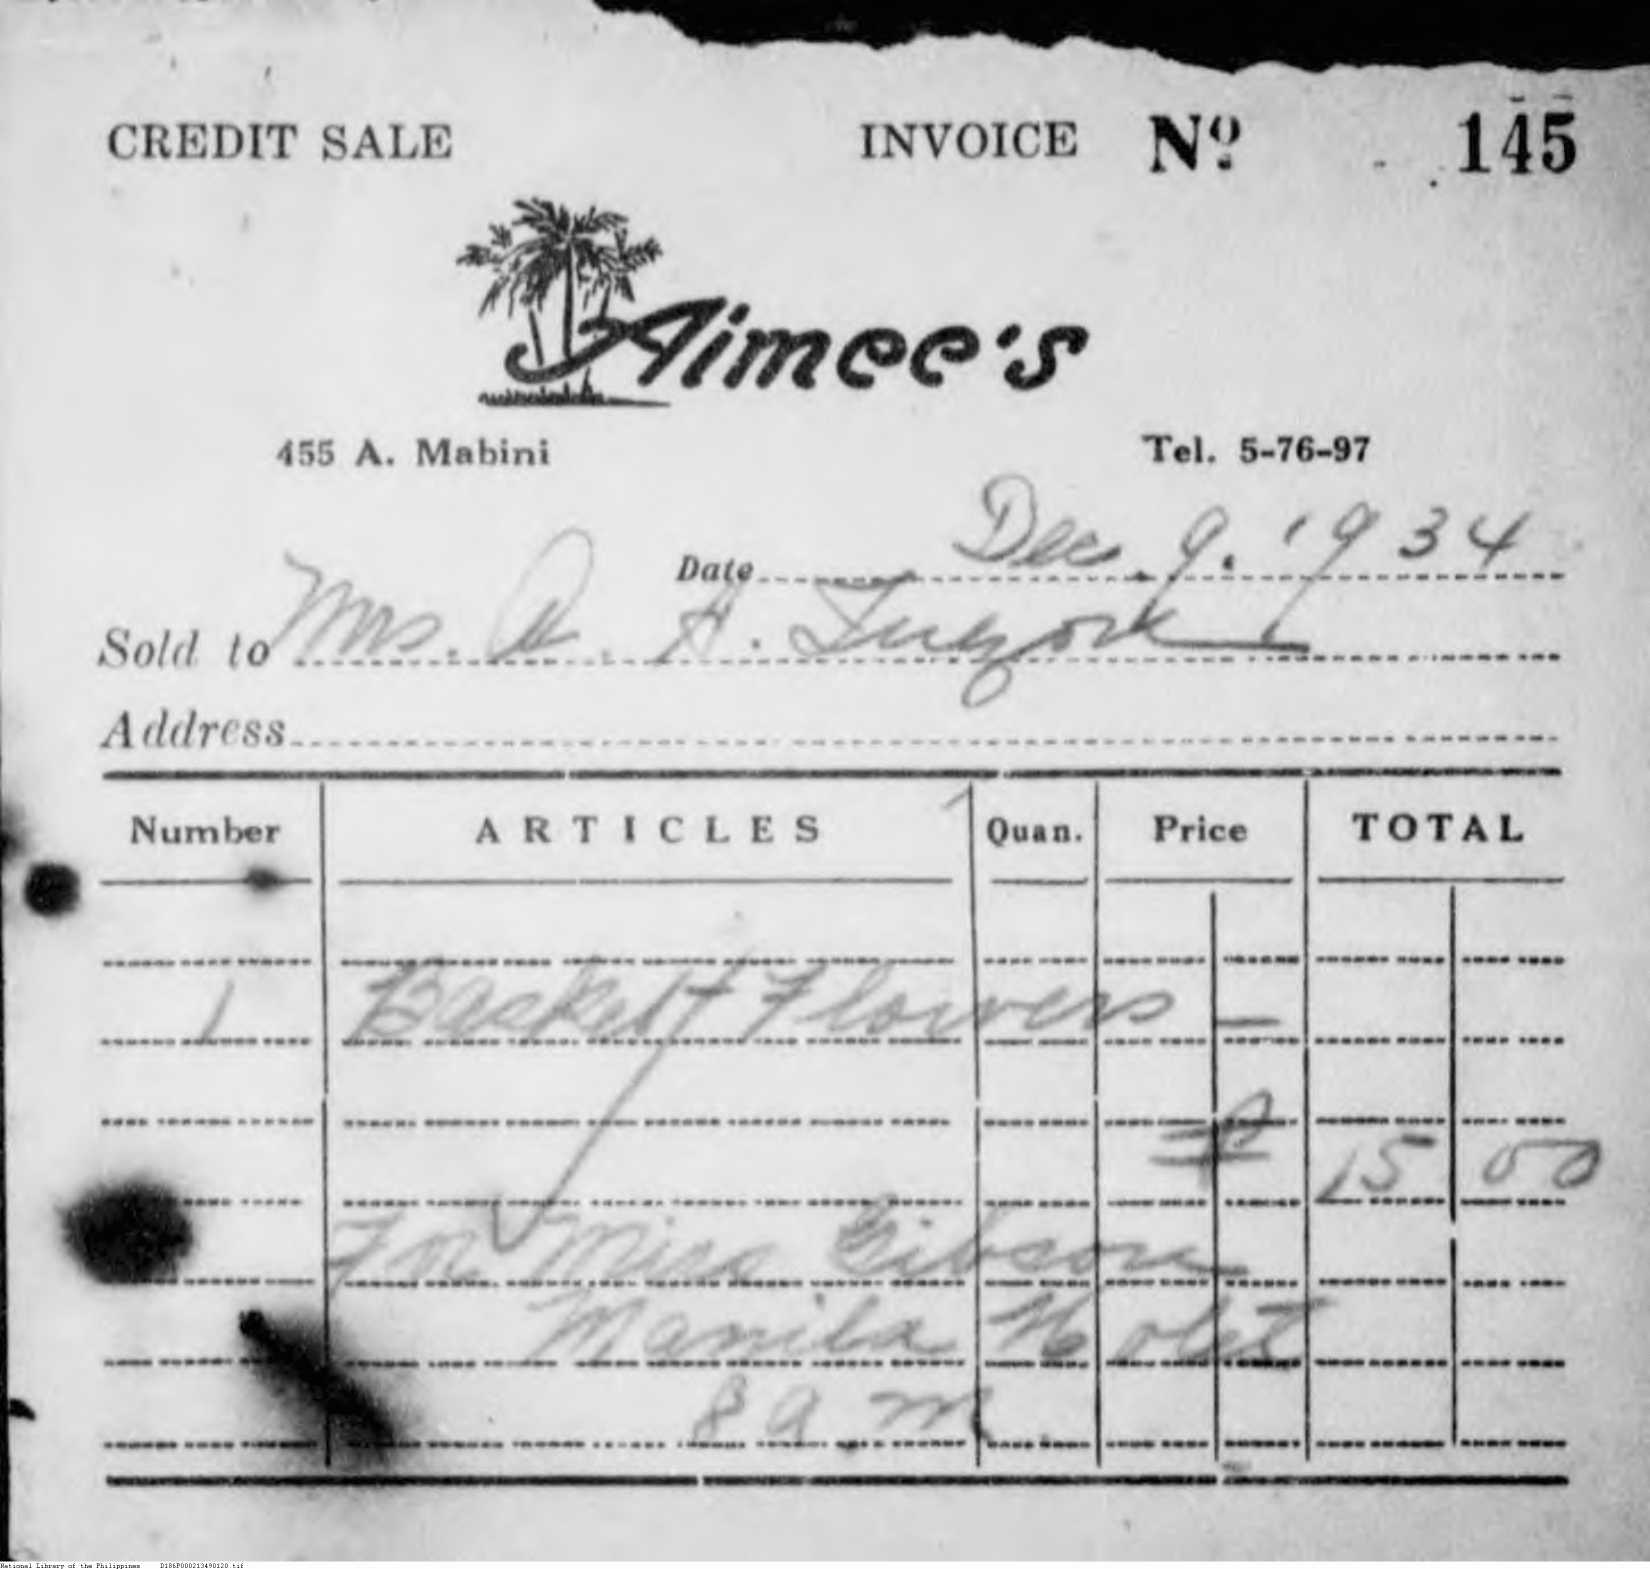 CREDIT SALE INVOICE Nº 145
Aimee's
455 A. Mabini Tel. 5-76-97
Date Dec. 9. 1934
Sold to Mrs. A. H.
Address
Number ARTICLES Quan. Price TOTAL
1 Basket Flowers —
₱ 15 00
For Miss Gibson
Manila Hotel
8 a. m.
National Library of the Philippines D186P000213490120.tif